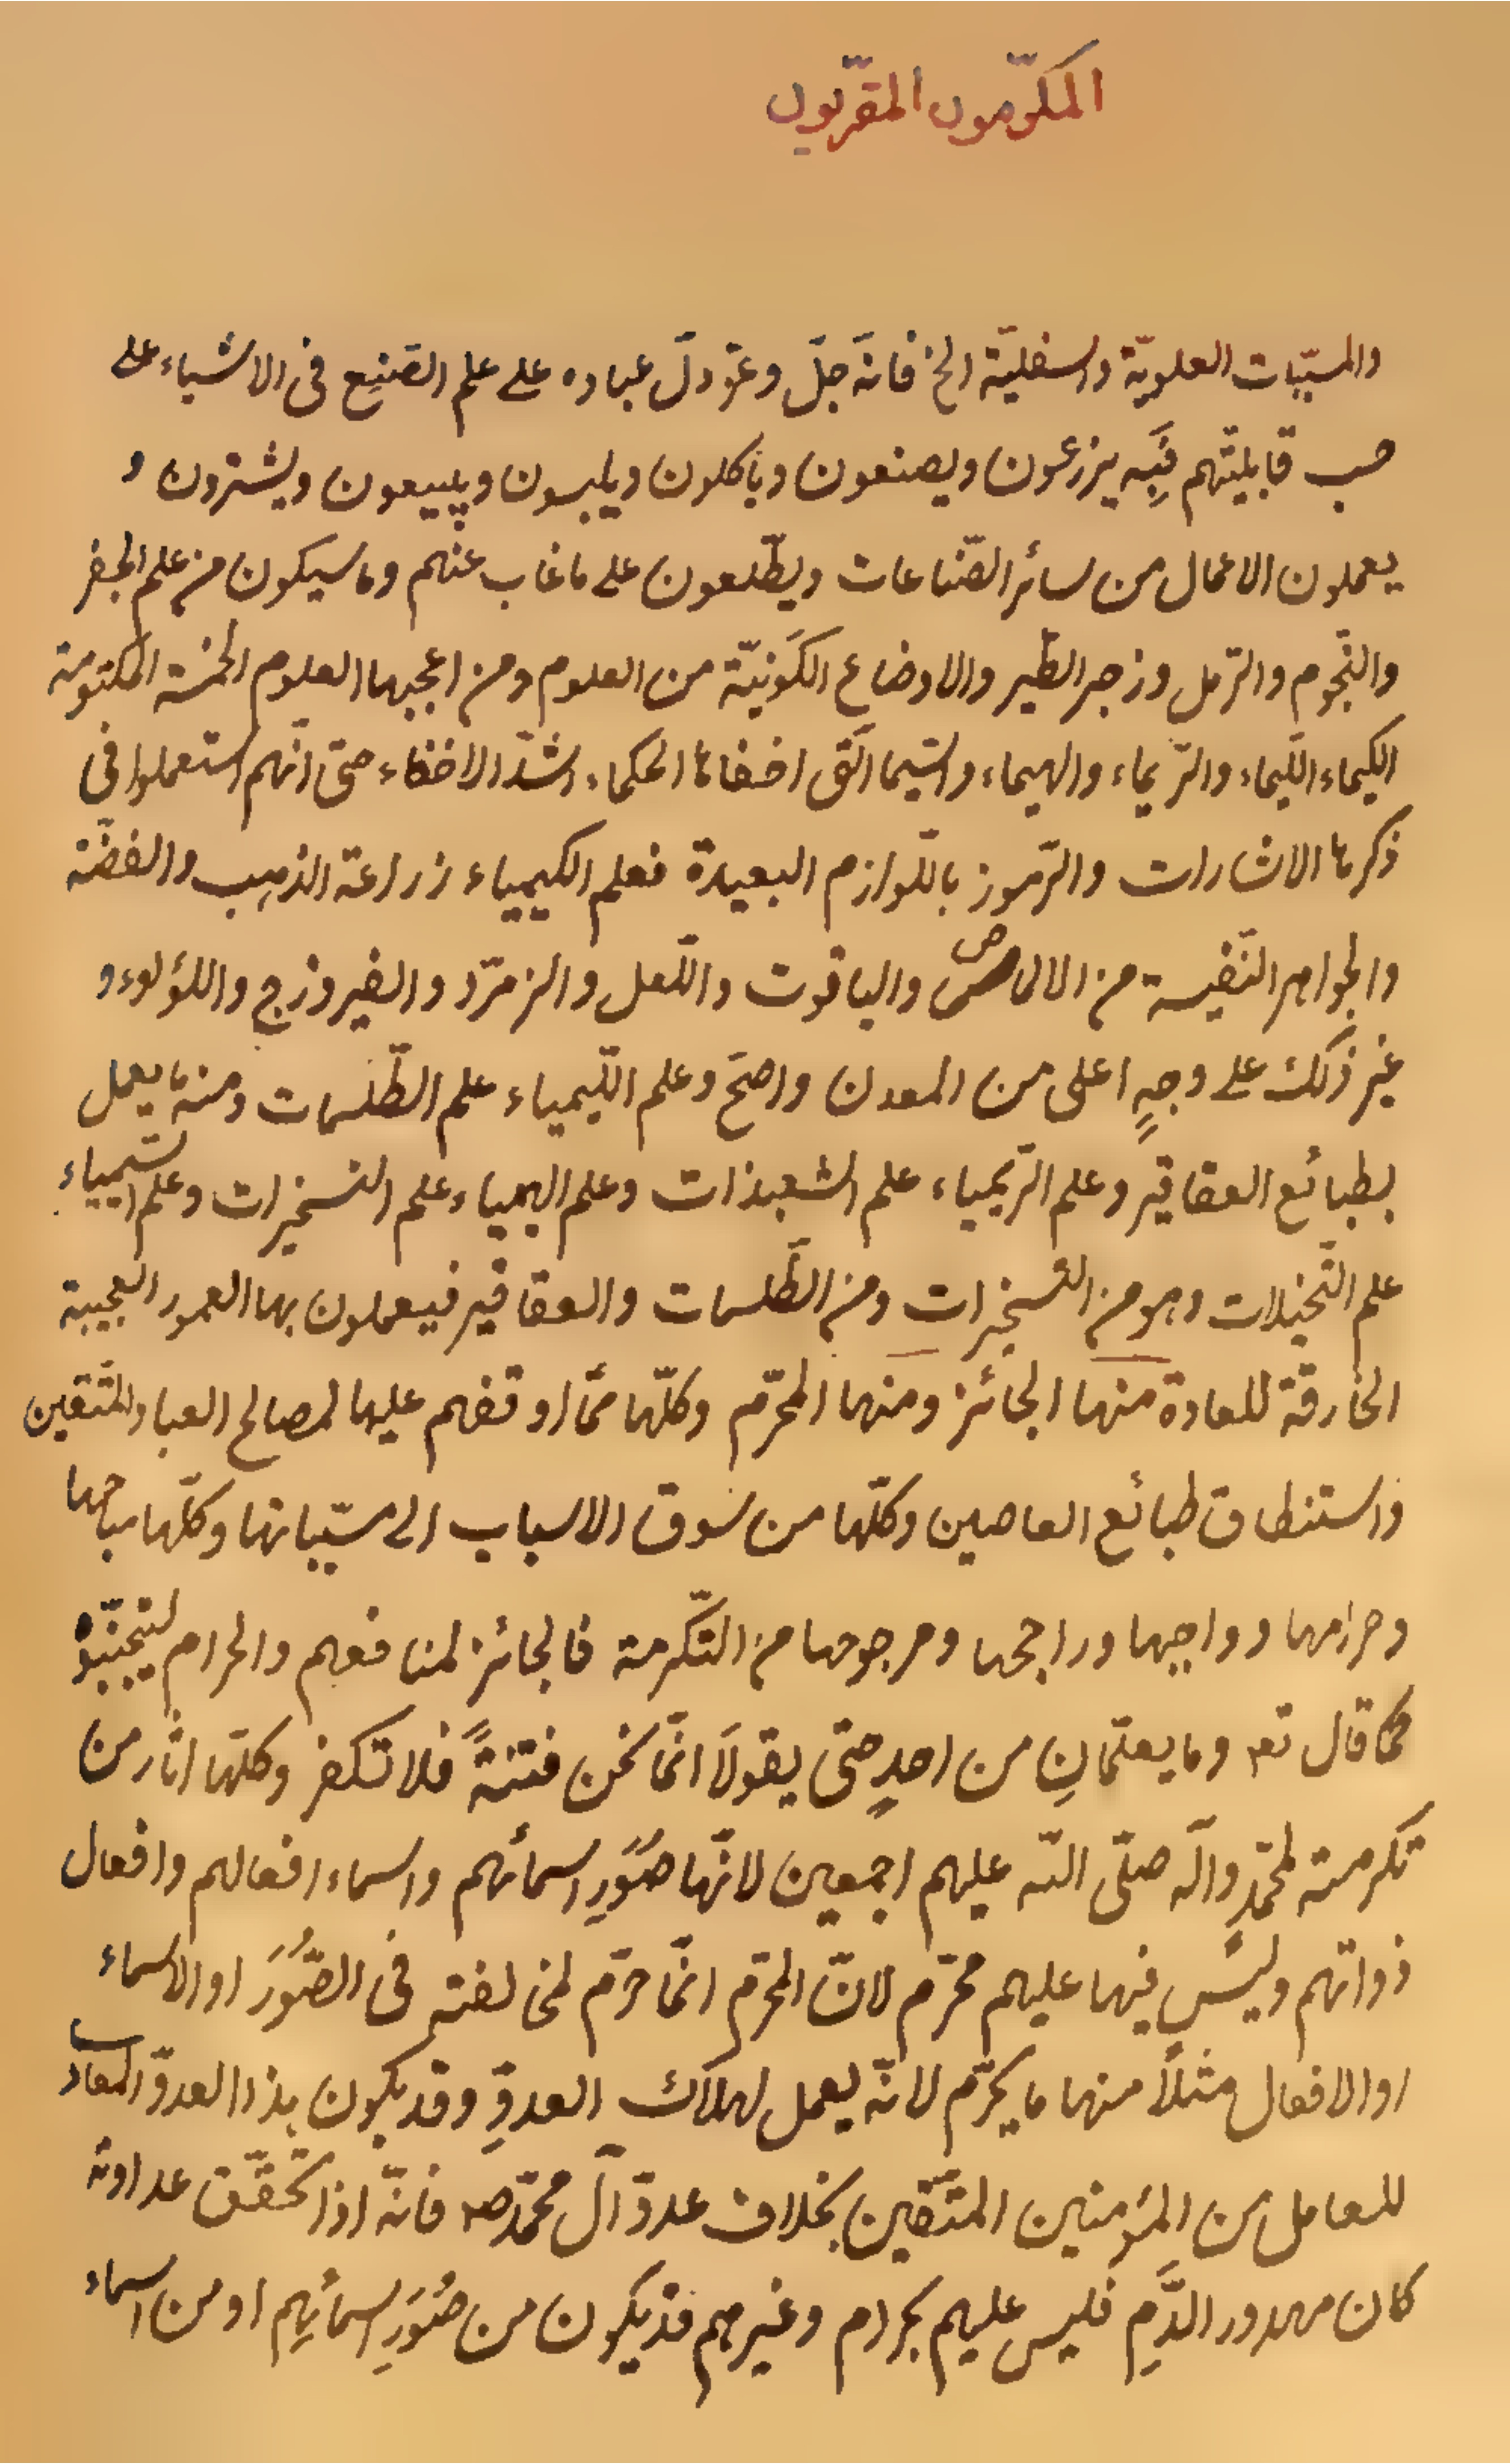 المكرّمون المقرّبون
والمسبّبات العلويّة والسفليّة الخ فانه جلّ وعزّ دلّ عباده على علم الصّنيع فى الاشياء على
حسب قابليّتهم فَبِه يزرعون ويصنعون وياكلون ويلبسون ويبيعون ويشترون و
يعملون الاعمال من سائر الصّناعات ويطّلعون على ما غاب عنهم وما سيكون من علم الجفر
والنّجوم والرّمل وزجر الطّير والاوضاع الكَونيّة من العلوم ومن اعجبها العلوم الخمسة المكتومة
الكيماء اللّيماء والرّيماء والهيماء والسّيما الّتى اخفاها الحكماء اشدّ الاخفاء حتى انّهم استعملوا فى
ذكرها الاشارات والرّموز باللّوازم البعيدة فعلم الكيمياء زراعة الذهب والفضّة
والجواهر النّفيسة من الالماص والياقوت واللّعل والزمرّد والفيروزج واللؤلوء و
غير ذلك على وجهٍ اعلى من المعدن واصحّ وعلم اللّيمياء علم الطّلسمات ومنه ما يعمل
بطبائع العقاقير وعلم الرّيمياء علم الشعبذات وعلم الهيمياء علم التسخيرات وعلم السّيمياء
علم التّخيّلات وهو من التسخيرات ومن الطّلسمات والعقاقير فيعملون بها العمور العجيبة
الخارقة للعادة منها الجائز ومنها المحرّم وكلّها ممّا اوقفهم عليها لمصالح العباد للمتّقين
واستنطاق طبائع العاصين وكلّها من سوق الاسباب الى مسبّباتها وكلّها مباحها
وحرامها وواجبها وراجحها ومرجوحها من التّكرمة فالجائز لمنافعهم والحرام ليتجنّبوه
كما قال تعه وما يعلّمانِ من احدٍ حتّى يقولَا انّما نحن فتنةً فلا تكفر وكلّها اثار من
تكرمته لمحمّدٍ واله صلّى اللّه عليهم اجمعين لانّها صُوَرِ اسمائهم واسماء افعالهم وافعال
ذواتهم وليس فيها عليهم محرّم لانّ المحرّم انّما حرّم لمخالفته فى الصُّوَرَ او الاسماء
او الافعال مثلاً منها ما يحرّم لانّه يعمل لهلاك العدوِّ وقد يكون هذا العدوّ المعاد
للعامل من المؤمنين المتّقين بخلاف عدوّ آل محمّد صه فانّه اذا تحقّق عداوته
كان مهدور الدَّمِ فليس عليهم بحرام وغيرهم قد يكون من صُوَرِ اسمائِهم او من اسماء